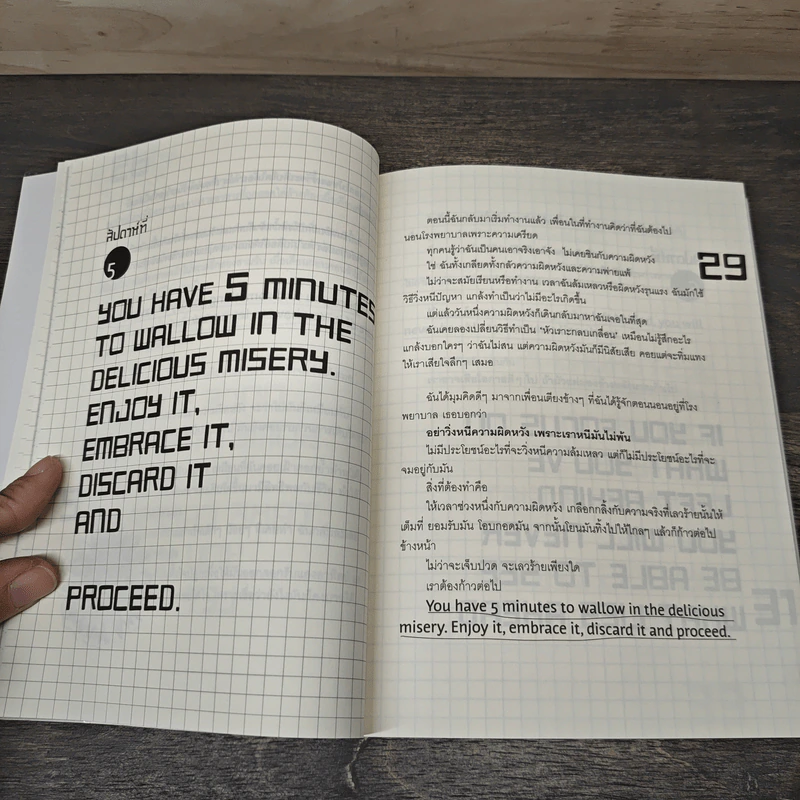 สัปดาห์ที่
5
YOU HAVE 5 MINUTES
TO WALLOW IN THE
DELICIOUS MISERY.
ENJOY IT,
EMBRACE IT,
DISCARD IT
AND
PROCEED.
29
ตอนนี้ฉันกลับมาเริ่มทำงานแล้ว เพื่อนในที่ทำงานคิดว่าที่ฉันต้องไป
นอนโรงพยาบาลเพราะความเครียด
ทุกคนรู้ว่าฉันเป็นคนเอาจริงเอาจัง ไม่เคยชินกับความผิดหวัง
ใช่ ฉันทั้งเกลียดทั้งกลัวความผิดหวังและความพ่ายแพ้
ไม่ว่าจะสมัยเรียนหรือทำงาน เวลาฉันล้มเหลวหรือผิดหวังรุนแรง ฉันมักใช้
วิธีวิ่งหนีปัญหา แกล้งทำเป็นว่าไม่มีอะไรเกิดขึ้น
แต่แล้ววันหนึ่งความผิดหวังก็เดินกลับมาหาฉันเจอในที่สุด
ฉันเคยลองเปลี่ยนวิธีทำเป็น 'หัวเราะกลบเกลื่อน' เหมือนไม่รู้สึกอะไร
แกล้งบอกใครๆ ว่าฉันไม่สน แต่ความผิดหวังมันก็มีนิสัยเสีย คอยแต่จะทิ่มแทง
ให้เราเสียใจลึกๆ เสมอ
ฉันได้มุมคิดดีๆ มาจากเพื่อนเตียงข้างๆ ที่ฉันได้รู้จักตอนนอนอยู่ที่โรง
พยาบาล เธอบอกว่า
อย่าวิ่งหนีความผิดหวัง เพราะเราหนีมันไม่พ้น
ไม่มีประโยชน์อะไรที่จะวิ่งหนีความล้มเหลว แต่ก็ไม่มีประโยชน์อะไรที่จะ
จมอยู่กับมัน
สิ่งที่ต้องทำคือ
ให้เวลาช่วงหนึ่งกับความผิดหวัง เกลือกกลิ้งกับความจริงที่เลวร้ายนั้นให้
เต็มที่ ยอมรับมัน โอบกอดมัน จากนั้นโยนมันทิ้งไปให้ไกลๆ แล้วก็ก้าวต่อไป
ข้างหน้า
ไม่ว่าจะเจ็บปวด จะเลวร้ายเพียงใด
เราต้องก้าวต่อไป
You have 5 minutes to wallow in the delicious
misery. Enjoy it, embrace it, discard it and proceed.